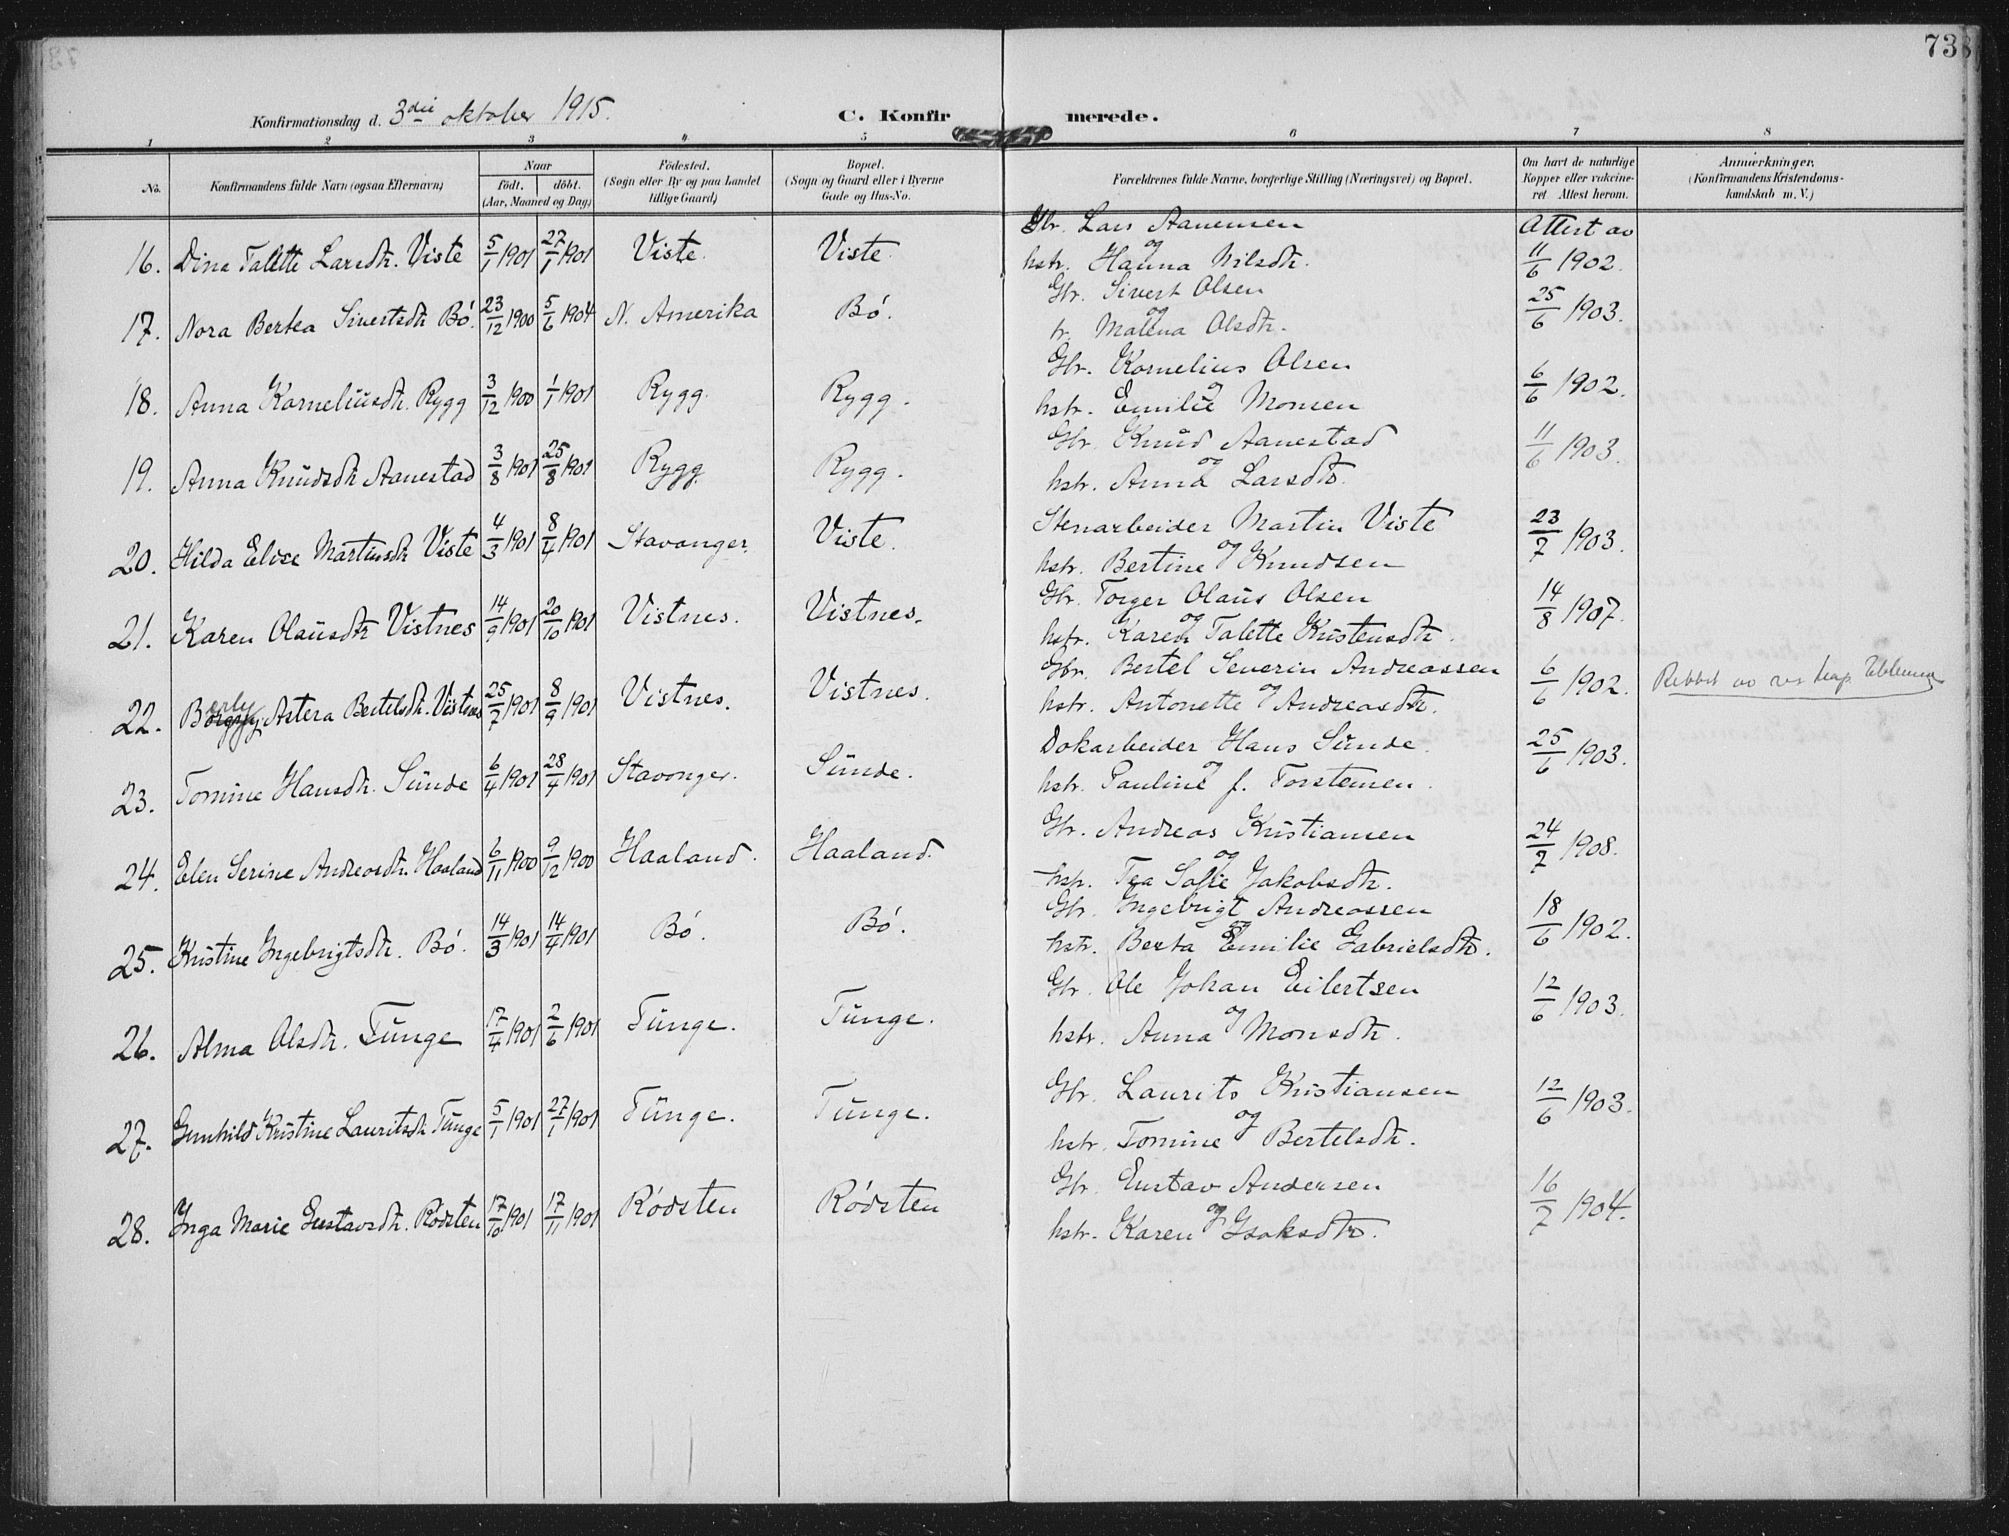 73
Konfirmationsdag d. 3die oktober 1915.
C. Konfirmerede.
1 2 3 4 5 6 7 8
No.
Konfirmandens fulde Navn (ogsaa Efternavn)
Naar
födt. döbt.
(Aar, Maaned og Dag)
Födested.
(Sogn eller By og paa Landet
tillige Gaard)
Bopæl.
(Sogn og Gaard eller i Byerne
Gade og Hus-No.
Forældrenes fulde Navne, borgerlige Stilling (Næringsvei) og Bopæl.
Om havt de naturlige
Kopper eller vakcine-
ret Attest herom.
Anmærkninger.
(Konfirmandens Kristendoms-
kundskab m. V.)
16. Dina Talette Larsdtr. Viste 5/1 1901 27/1 1901 Viste. Viste. Gbr. Lars Aanensen og Attest av
hstr. Hanna Nilsdtr. 11/6 1902.
17. Nora Bertea Sivertsdtr Bö. 23/12 1900 5/6 1904 N. Amerika Bö. Gbr. Sivert Olsen og 25/6 1903.
Malena Olsdtr.
18. Anna Korneliusdtr. Rygg 3/12 1900 1/1 1901 Rygg. Rygg. Gbr. Kornelius Olsen og 6/6 1902.
hstr. Emilie Monsen
19. Anna Knudsdtr Aanestad 3/8 1901 25/8 1901 Rygg. Rygg. Gbr. Knud Aanestad og 11/6 1903.
hstr. Anna Larsdtr.
20. Hilda Elise Martinsdtr Viste 4/3 1901 8/4 1901 Stavanger. Viste. Stenarbeider Martin Viste og 23/7 1903.
hstr. Bertine Knudsen
21. Karen Olausdtr Vistnes 14/9 1901 20/10 1901 Vistnes. Vistnes. Gbr. Torger Olaus Olsen og 14/8 1907.
hstr. Karen Talette Kristensdtr.
22. Borgny Astera Bertelsdtr. Vistnes 25/7 1901 8/9 1901 Vistnes. Vistnes. Gbr. Bertel Severin Andreassen og 6/6 1902. Rettet av res kap
hstr. Antonette Andreasdtr.
23. Tomine Hansdtr. Sunde 6/4 1901 28/4 1901 Stavanger. Sunde. Dokarbeider Hans Sunde og 25/6 1903.
hstr. Pauline f. Torstensen.
24. Elen Serine Andreasdtr. Haaland 6/11 1900 9/12 1900 Haaland. Haaland. Gbr. Andreas Kristiansen og 24/7 1908.
hstr. Tea Sofie Jakobsdtr.
25. Kristine Ingebrigtsdtr. Bö. 14/3 1901 14/4 1901 Bö. Bö. Gbr. Ingebrigt Andreassen og 18/6 1902.
hstr. Berta Emilie Gabrielsdtr.
26. Alma Olsdtr. Tunge 17/4 1901 2/6 1901 Tunge. Tunge. Gbr. Ole Johan Eilertsen og 12/6 1903.
hstr. Anna Monsdtr.
27. Gunhild Kristine Lauritsdtr Tunge 5/1 1901 27/1 1901 Tunge. Tunge. Gbr. Laurits Kristiansen og 12/6 1903.
hstr. Tomine Bertelsdtr.
28. Inga Marie Gustavsdtr. Rödsten 17/10 1901 17/11 1901 Rödsten Rödsten Gbr. Gustav Andersen og 16/7 1904.
hstr. Karen Isaksdtr.